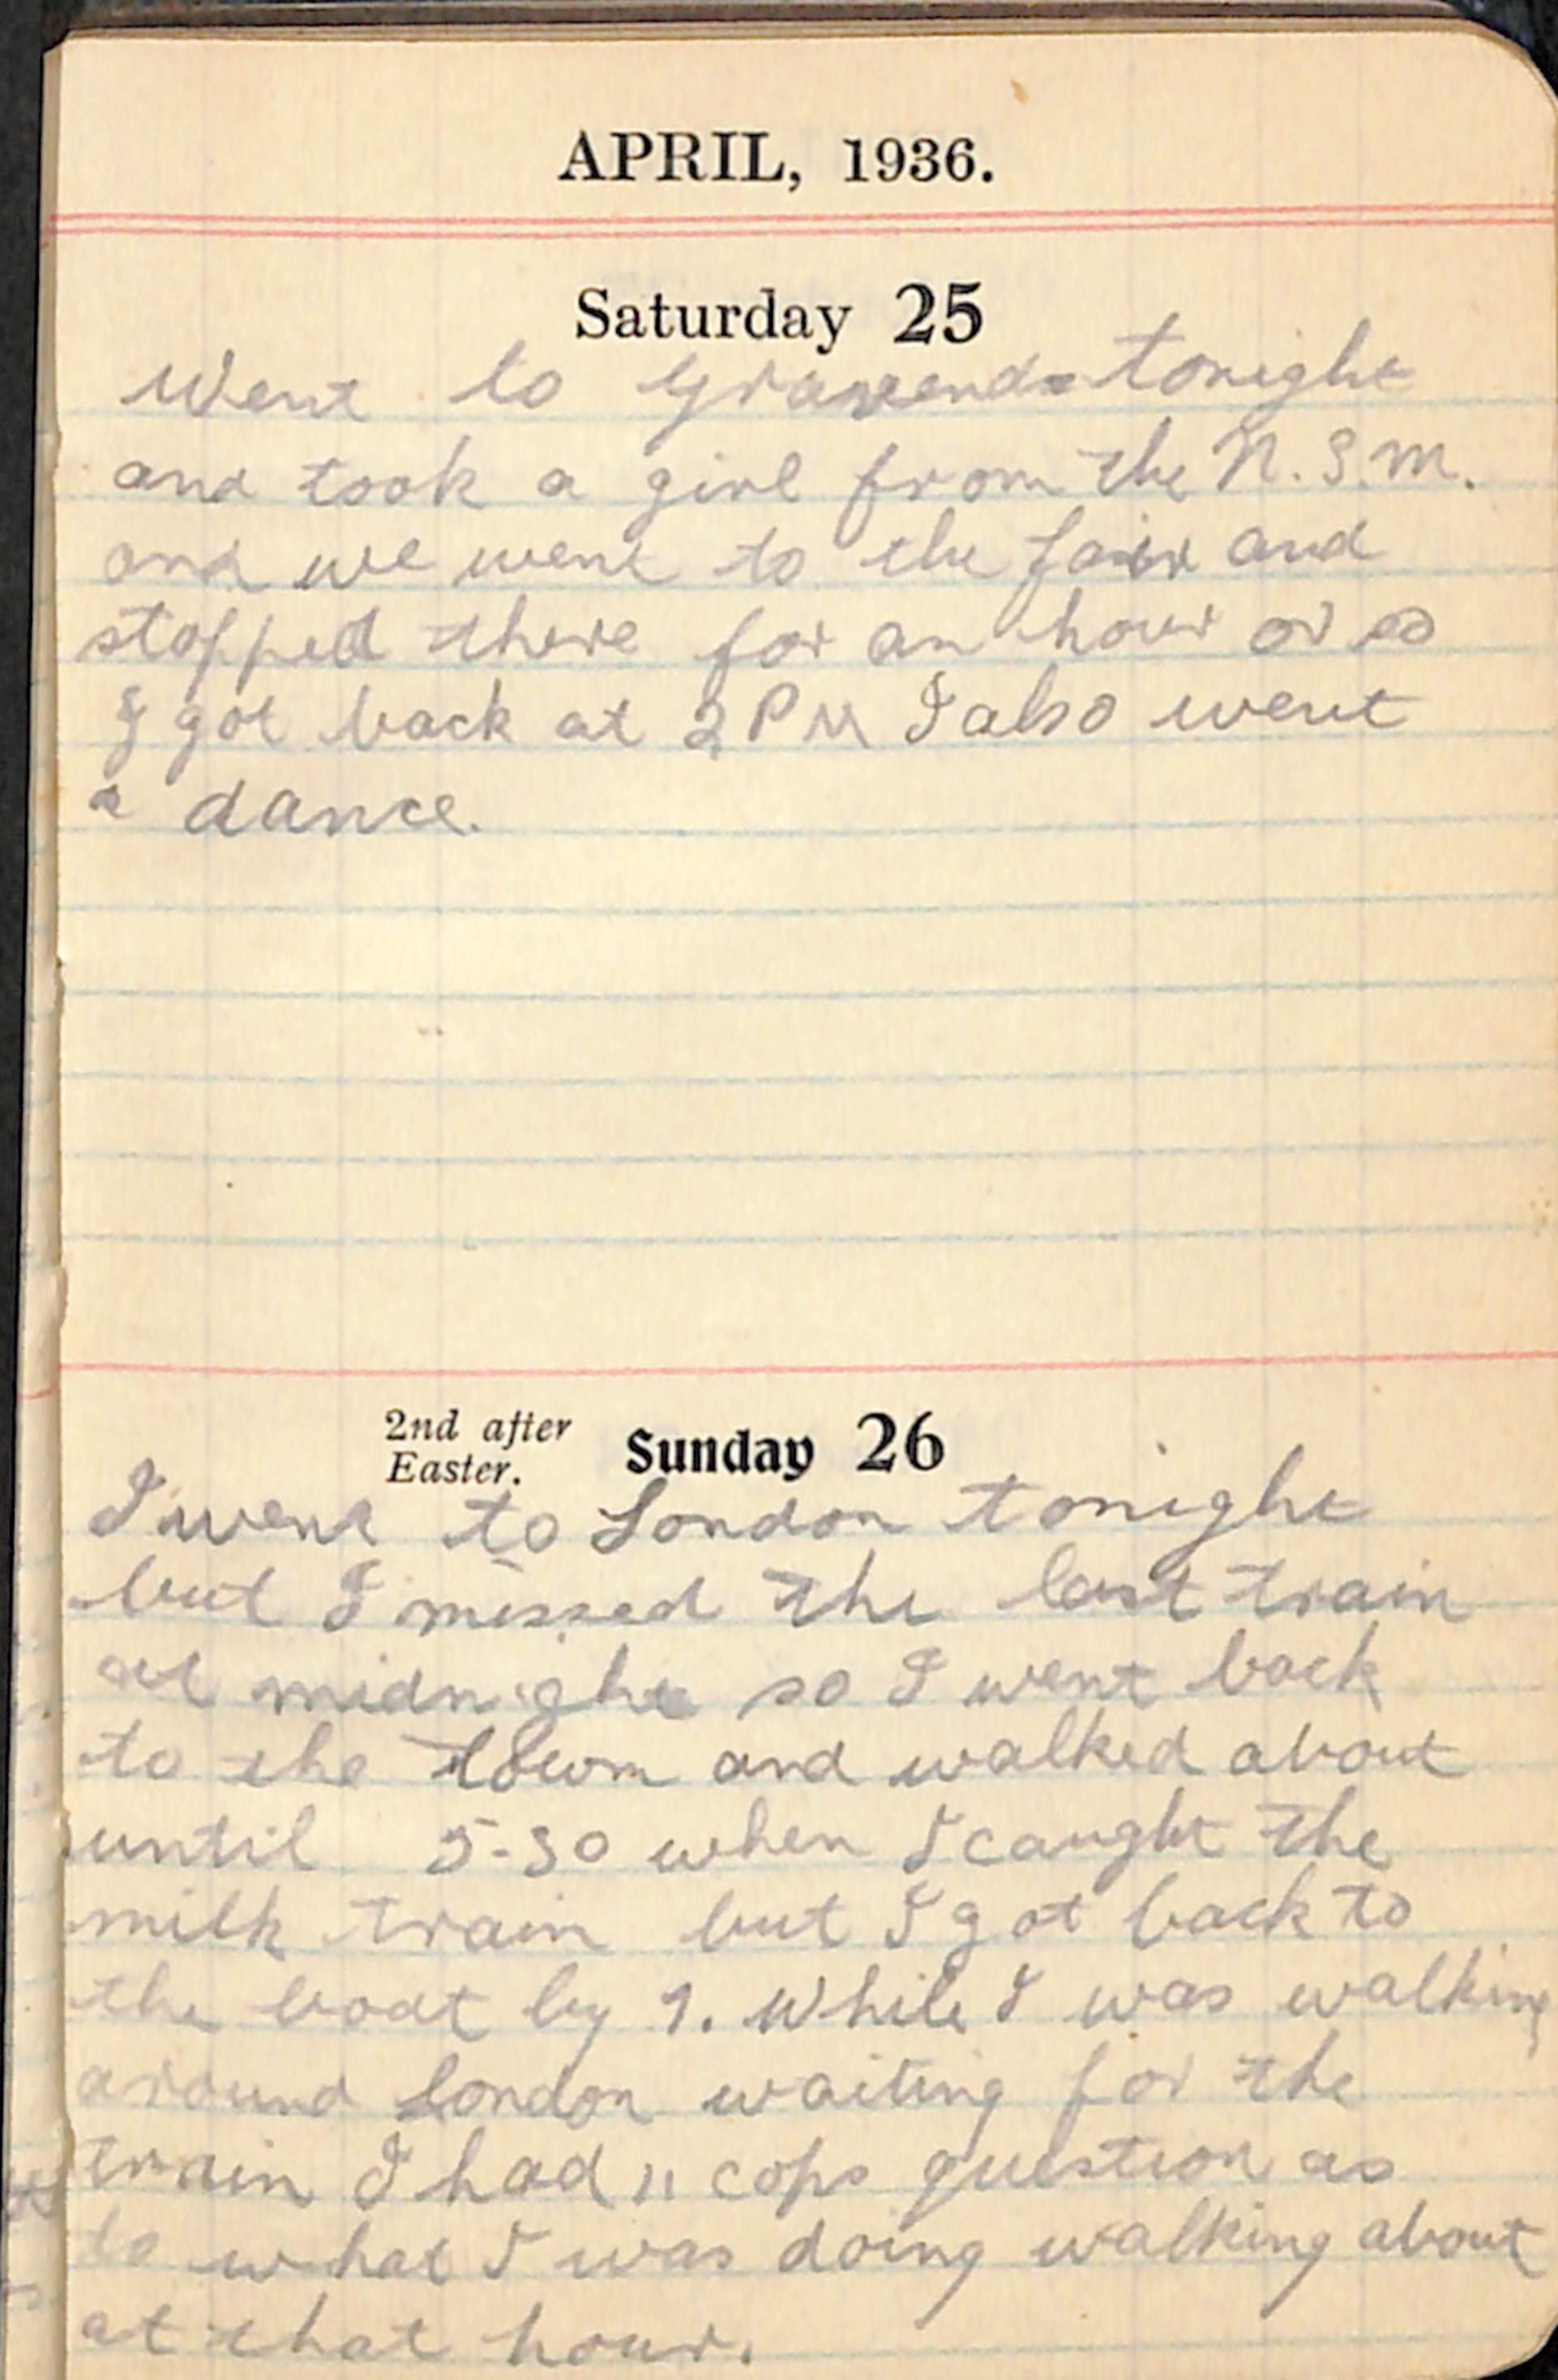 APRIL, 1936.
Saturday 25
Went to Gravesend tonight
and took a girl from the N.S.M.
and we went to the fair and
stopped there for an hour or so
I got back at 2 PM I also went
a dance.
2nd after
Easter.
Sunday 26
I went to London tonight
but I missed the last train
at midnight so I went back
to the town and walked about
until 5-30 when I caught the
milk train but I got back to
the boat by 9. While I was walking
around London waiting for the
train I had 11 cops question as
to what I was doing walking about
at that hour.